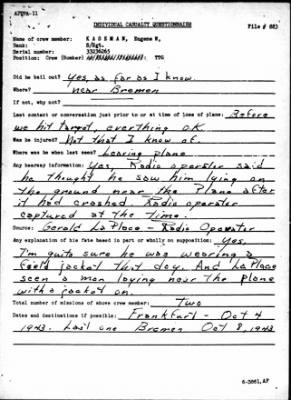 AFPPA-11
INDIVIDUAL CASUALTY QUESTIONNAIRE
File # 883
Name of crew member: K A S E M A N, Eugene W,
Rank: S/Sgt.
Serial number: 33236265
Position: Crew (Number) TTG
Did he bail out? Yes, as far as I know
Where? near Bremen
If not, why not?
Last contact or conversation just prior to or at time of loss of plane: Before
we hit target, everthing OK
Was he injured? Not that I know of.
Where was he last seen? Leaving plane
Any hearsay information: Yes, Radio operator said
he thought he saw him lying on
the ground near the Plane after
it had crashed. Radio operator
captured at the time.
Source: Gerald LaPlace - Radio Operator
Any explanation of his fate based in part or wholly on supposition: Yes,
I'm quite sure he was wearing a
field jacket that day. And LaPlace
seen a man laying near the plane
with a jacket on.
Total number of missions of above crew member: Two
Dates and destinations if possible: Frankfurt - Oct 4
1943. Last one Bremen Oct 8, 1943.
6-3861,AF